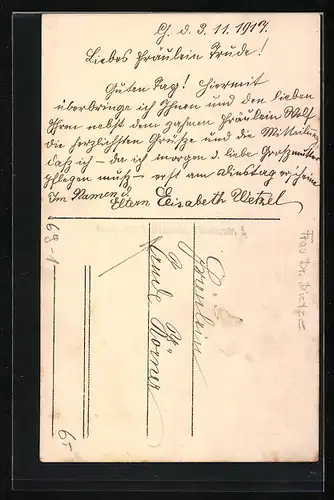 d. 3. 11. 1917.
Liebes Fräulein Trude!
Guten Tag! Hiermit
überbringe ich Ihnen und den lieben
Ihren nebst dem Fräulein Wolf
die herzlichsten Grüße und die Mitteilung
daß ich – da ich morgen d. liebe Großmutter
pflegen muß – erst am Dienstag erscheine
Im Namen d.
Eltern Elisabeth Wetzel
Fräulein
Trude Körner
Frau Dr. Dietze
68-1